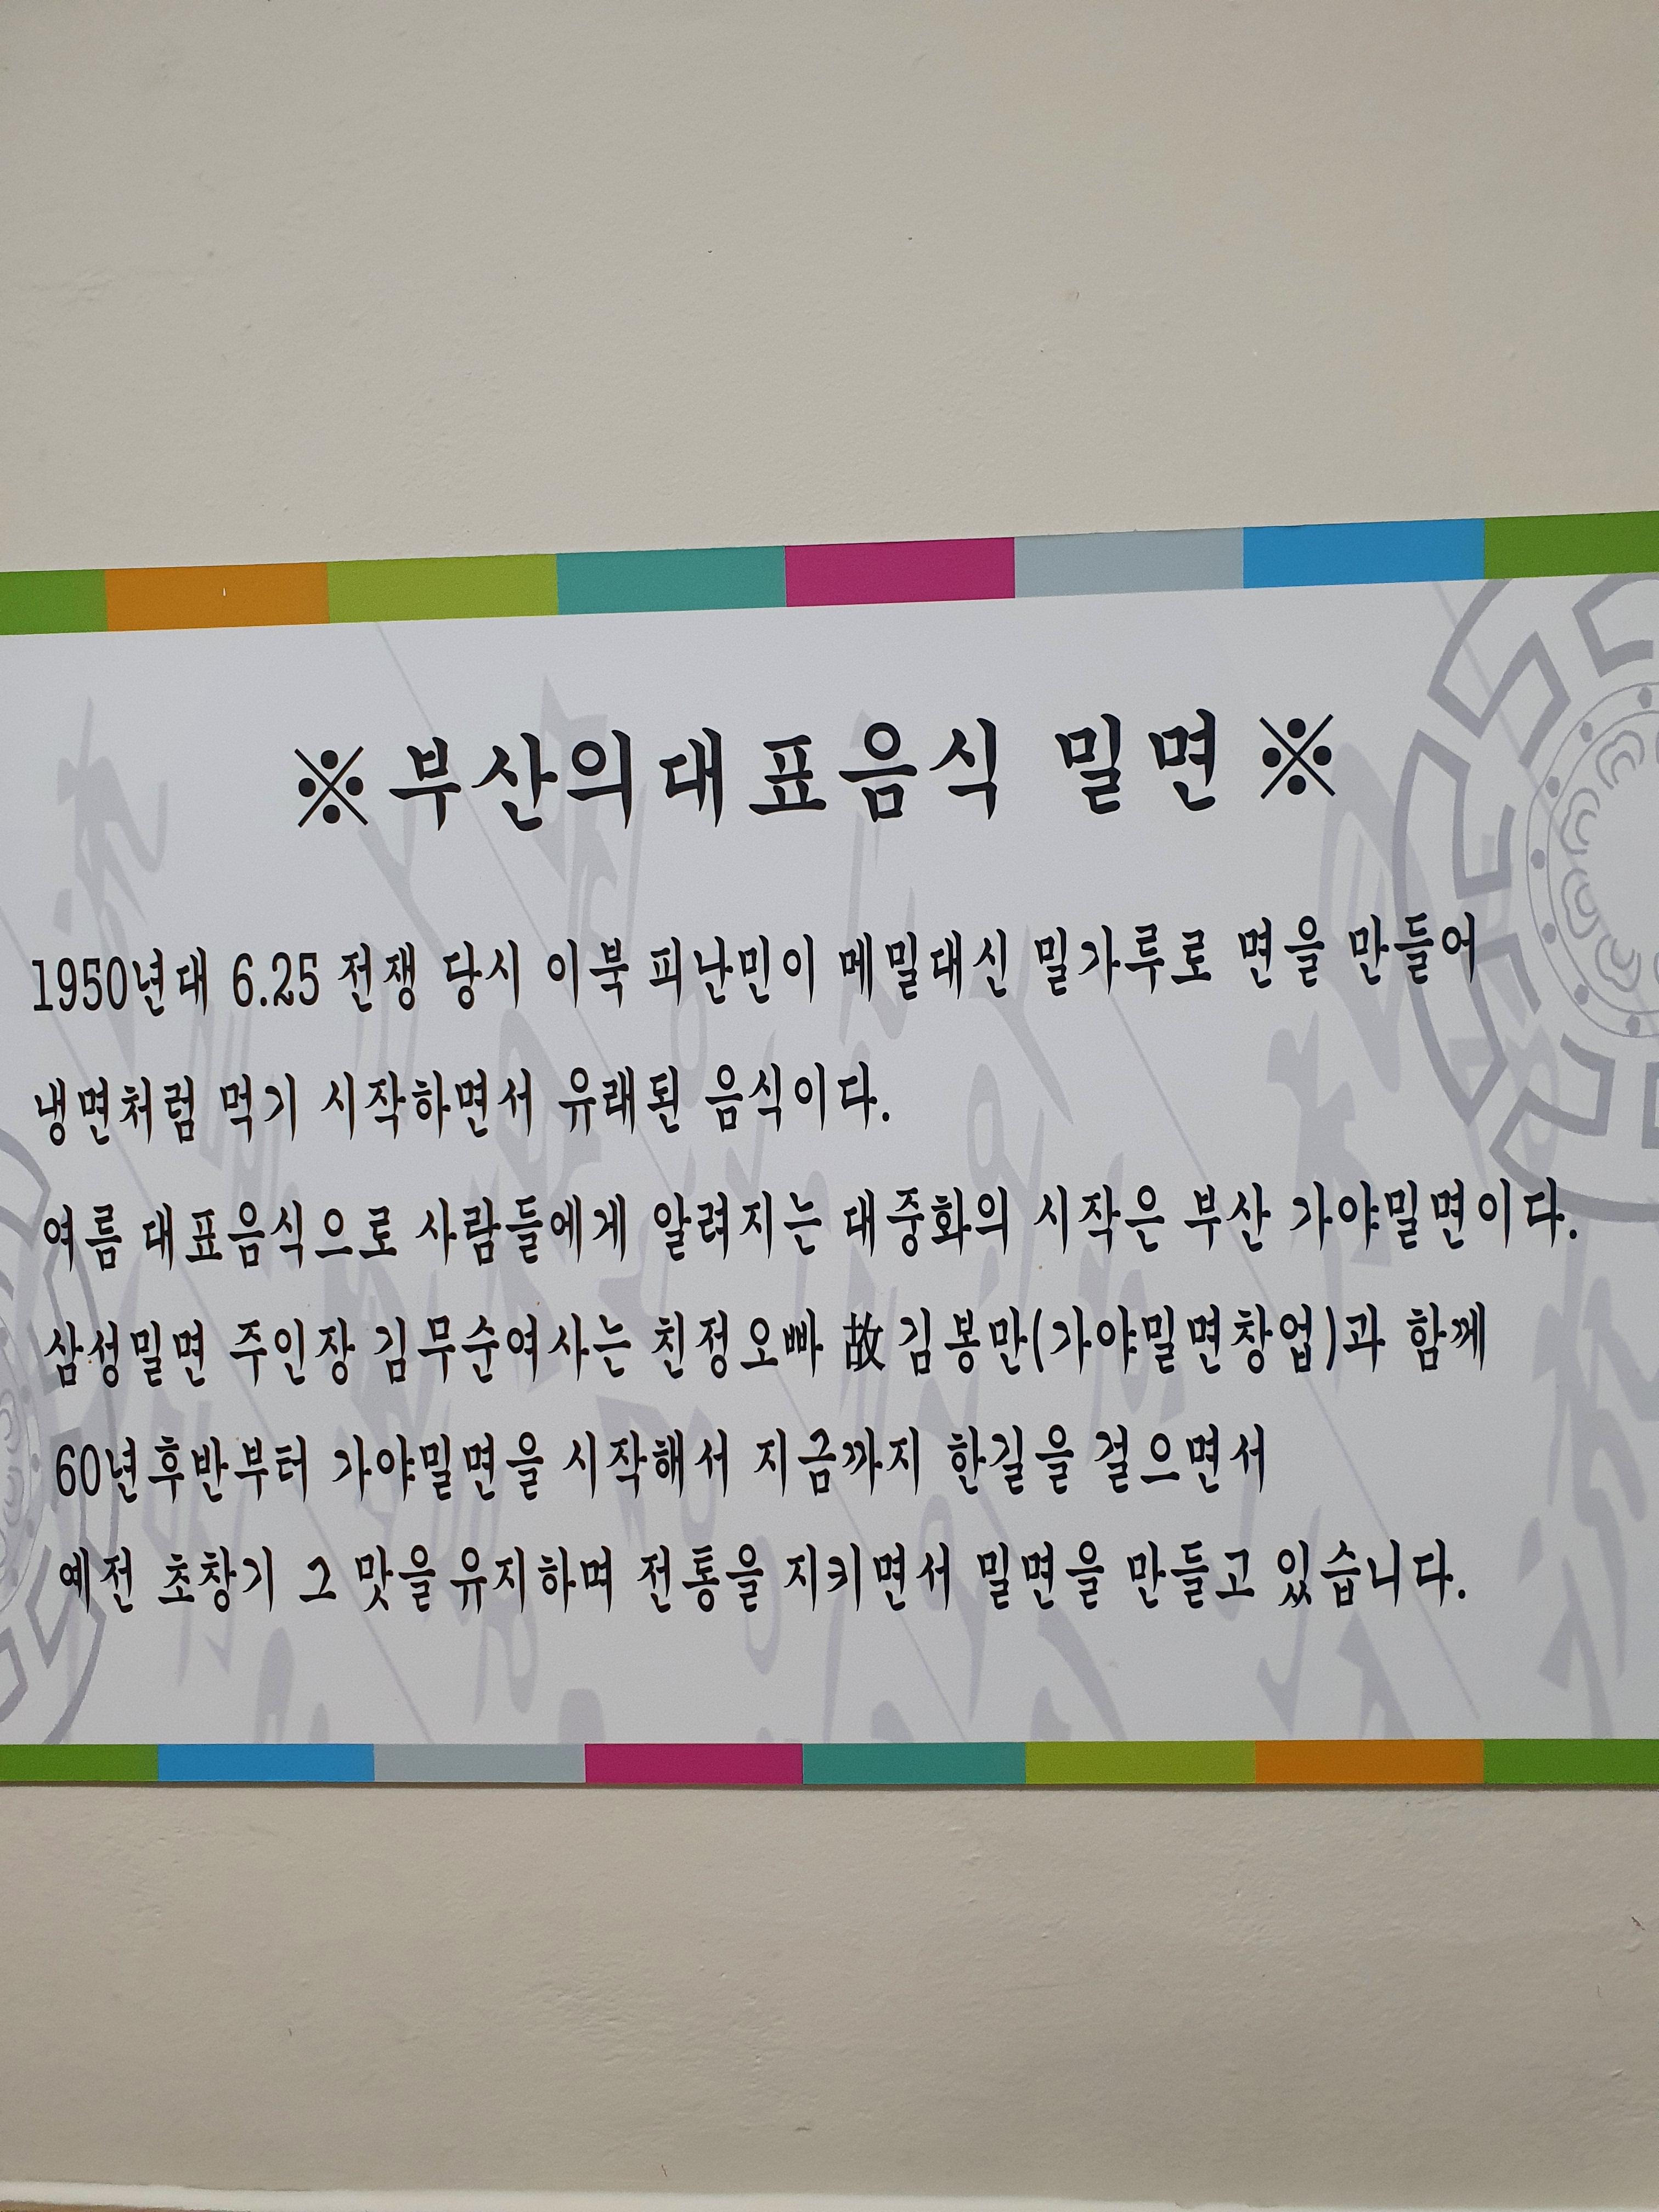 ※ 부산의대표음식 밀면 ※
1950년대 6.25 전쟁 당시 이북 피난민이 메밀대신 밀가루로 면을 만들어
냉면처럼 먹기 시작하면서 유래된 음식이다.
여름 대표음식으로 사람들에게 알려지는 대중화의 시작은 부산 가야밀면이다.
삼성밀면 주인장 김무순여사는 친정오빠 故김봉만(가야밀면창업)과 함께
60년후반부터 가야밀면을 시작해서 지금까지 한길을 걸으면서
예전 초창기 그 맛을유지하며 전통을 지키면서 밀면을 만들고 있습니다.